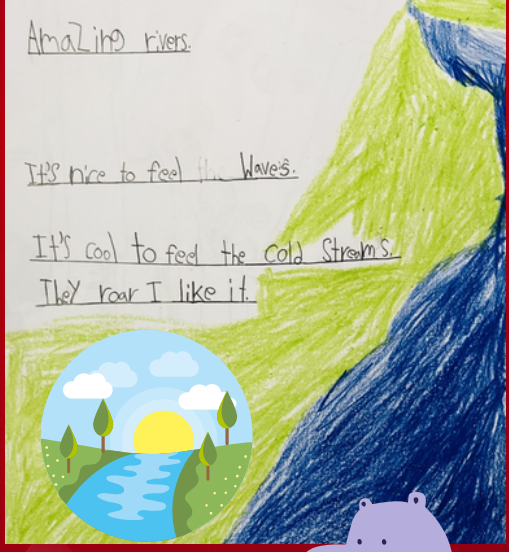 AmaZing rivers.
It's nice to feel Waves.
It's cool to feel the cold Streams.
TheY roar I like it.